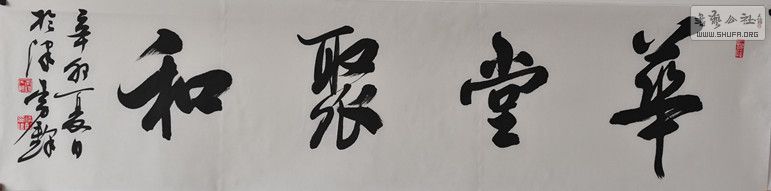 華堂聚和
辛卯夏日
於津
书艺公社
WWW.SHUFA.ORG